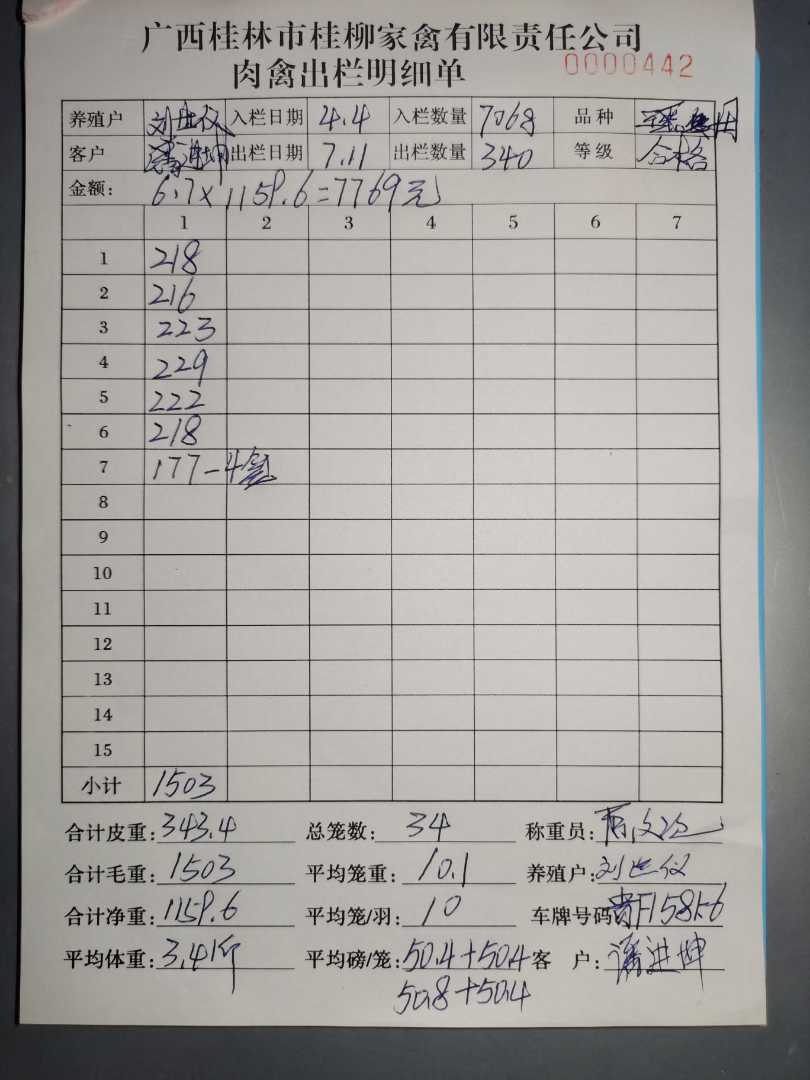 广西桂林市桂柳家禽有限责任公司
肉禽出栏明细单 0000442
养殖户 刘世仪 入栏日期 4.4 入栏数量 7068 品种
客户 潘进坤 出栏日期 7.11 出栏数量 340 等级 合格
金额: 6.7×1159.6=7769元
1 2 3 4 5 6 7
1 218
2 216
3 223
4 229
5 222
6 218
7 177-4笼
8
9
10
11
12
13
14
15
小计 1503
合计皮重: 343.4 总笼数: 34 称重员:
合计毛重: 1503 平均笼重: 10.1 养殖户: 刘世仪
合计净重: 1159.6 平均笼/羽: 10 车牌号码
平均体重: 3.41斤 平均磅/笼: 50.4+50.4 客 户: 潘进坤
50.8+50.4